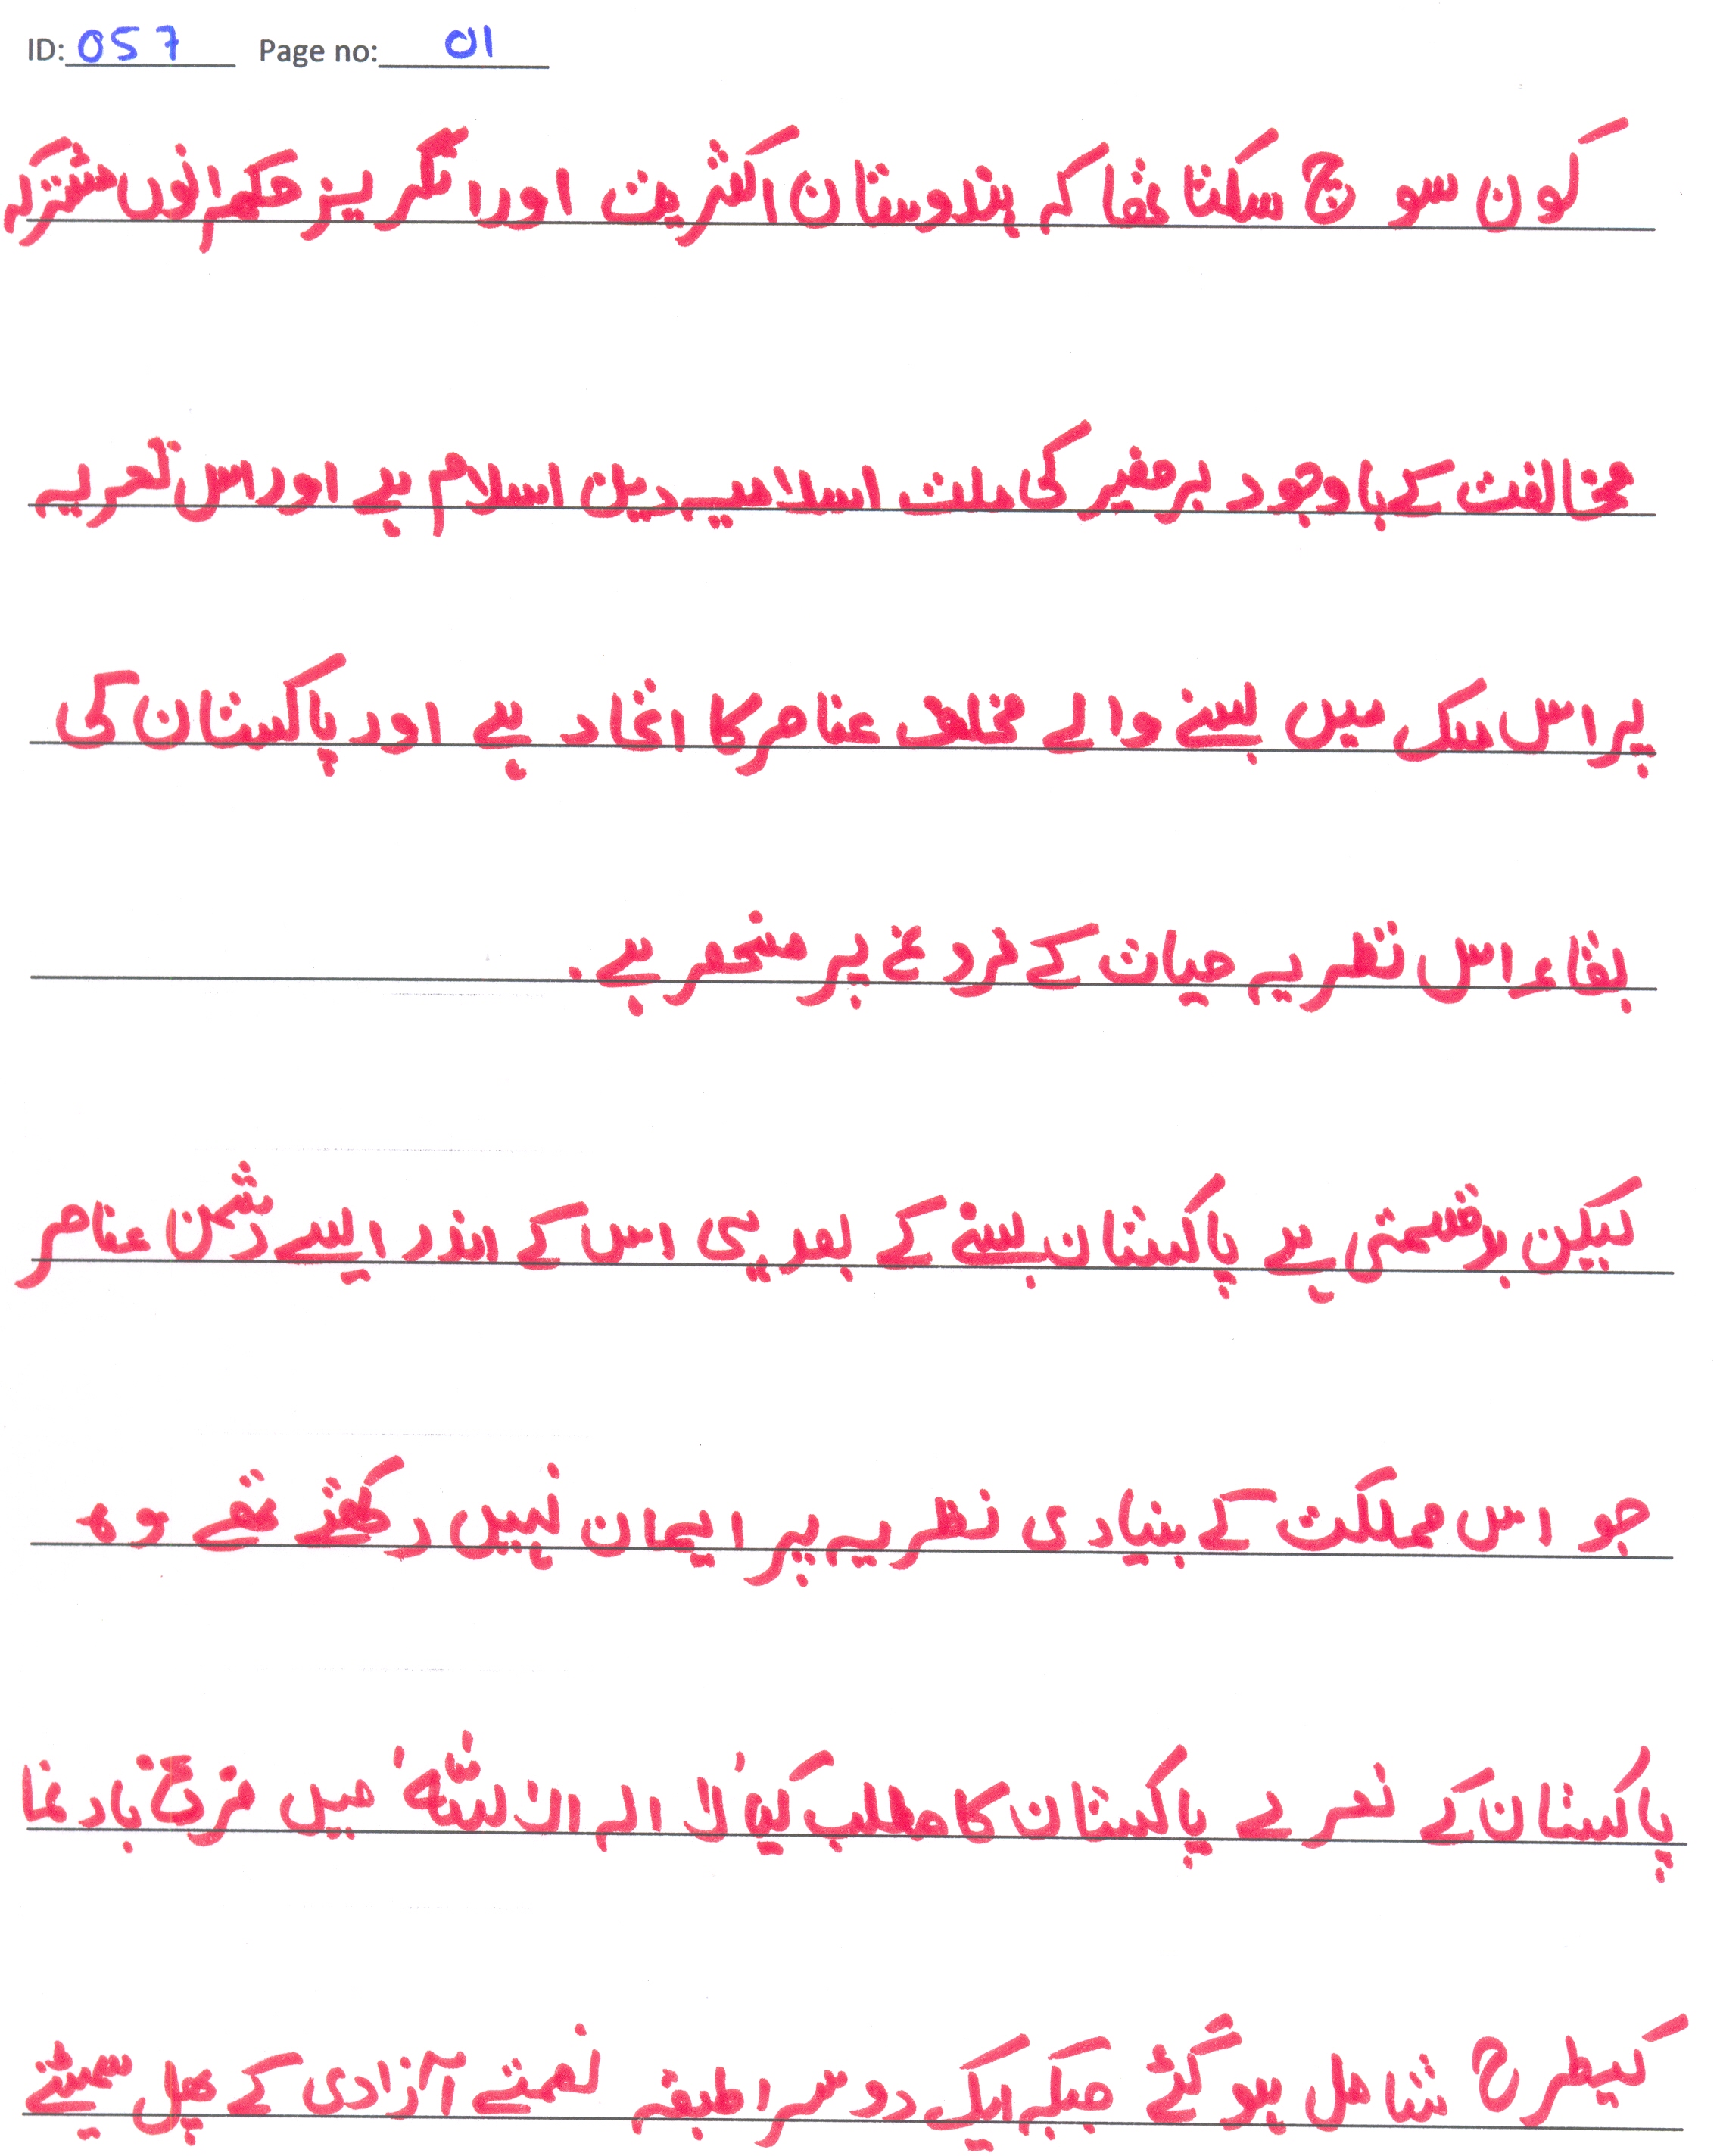 ID: 057 Page no: 01
کون سوچ سکتا تھا کہ ہندوستان اکثریت اور انگریز حکمرانوں مشترکہ
مخالفت کے باوجود برصغیر کی ملت اسلامیہ دین اسلام ہے اور اس نظریہ
پر اس ملک میں بسنے والے مختلف عناصر کا اتحاد ہے اور پاکستان کی
بقاء اس نظریہ حیات کے فروغ پر منحصر ہے۔
لیکن بدقسمتی سے پاکستان بننے کے بعد ہی اس کے اندر ایسے دشمن عناصر
جو اس مملکت کے بنیادی نظریہ پر ایمان نہیں رکھتے تھے وہ
پاکستان کے نعرے پاکستان کا مطلب کیا لا الہ الا اللہ میں مرغ باد نما
کیطرح شامل ہو گئے جبکہ ایک دوسرا طبقہ نعمتے آزادی کے پھل سمیٹنے